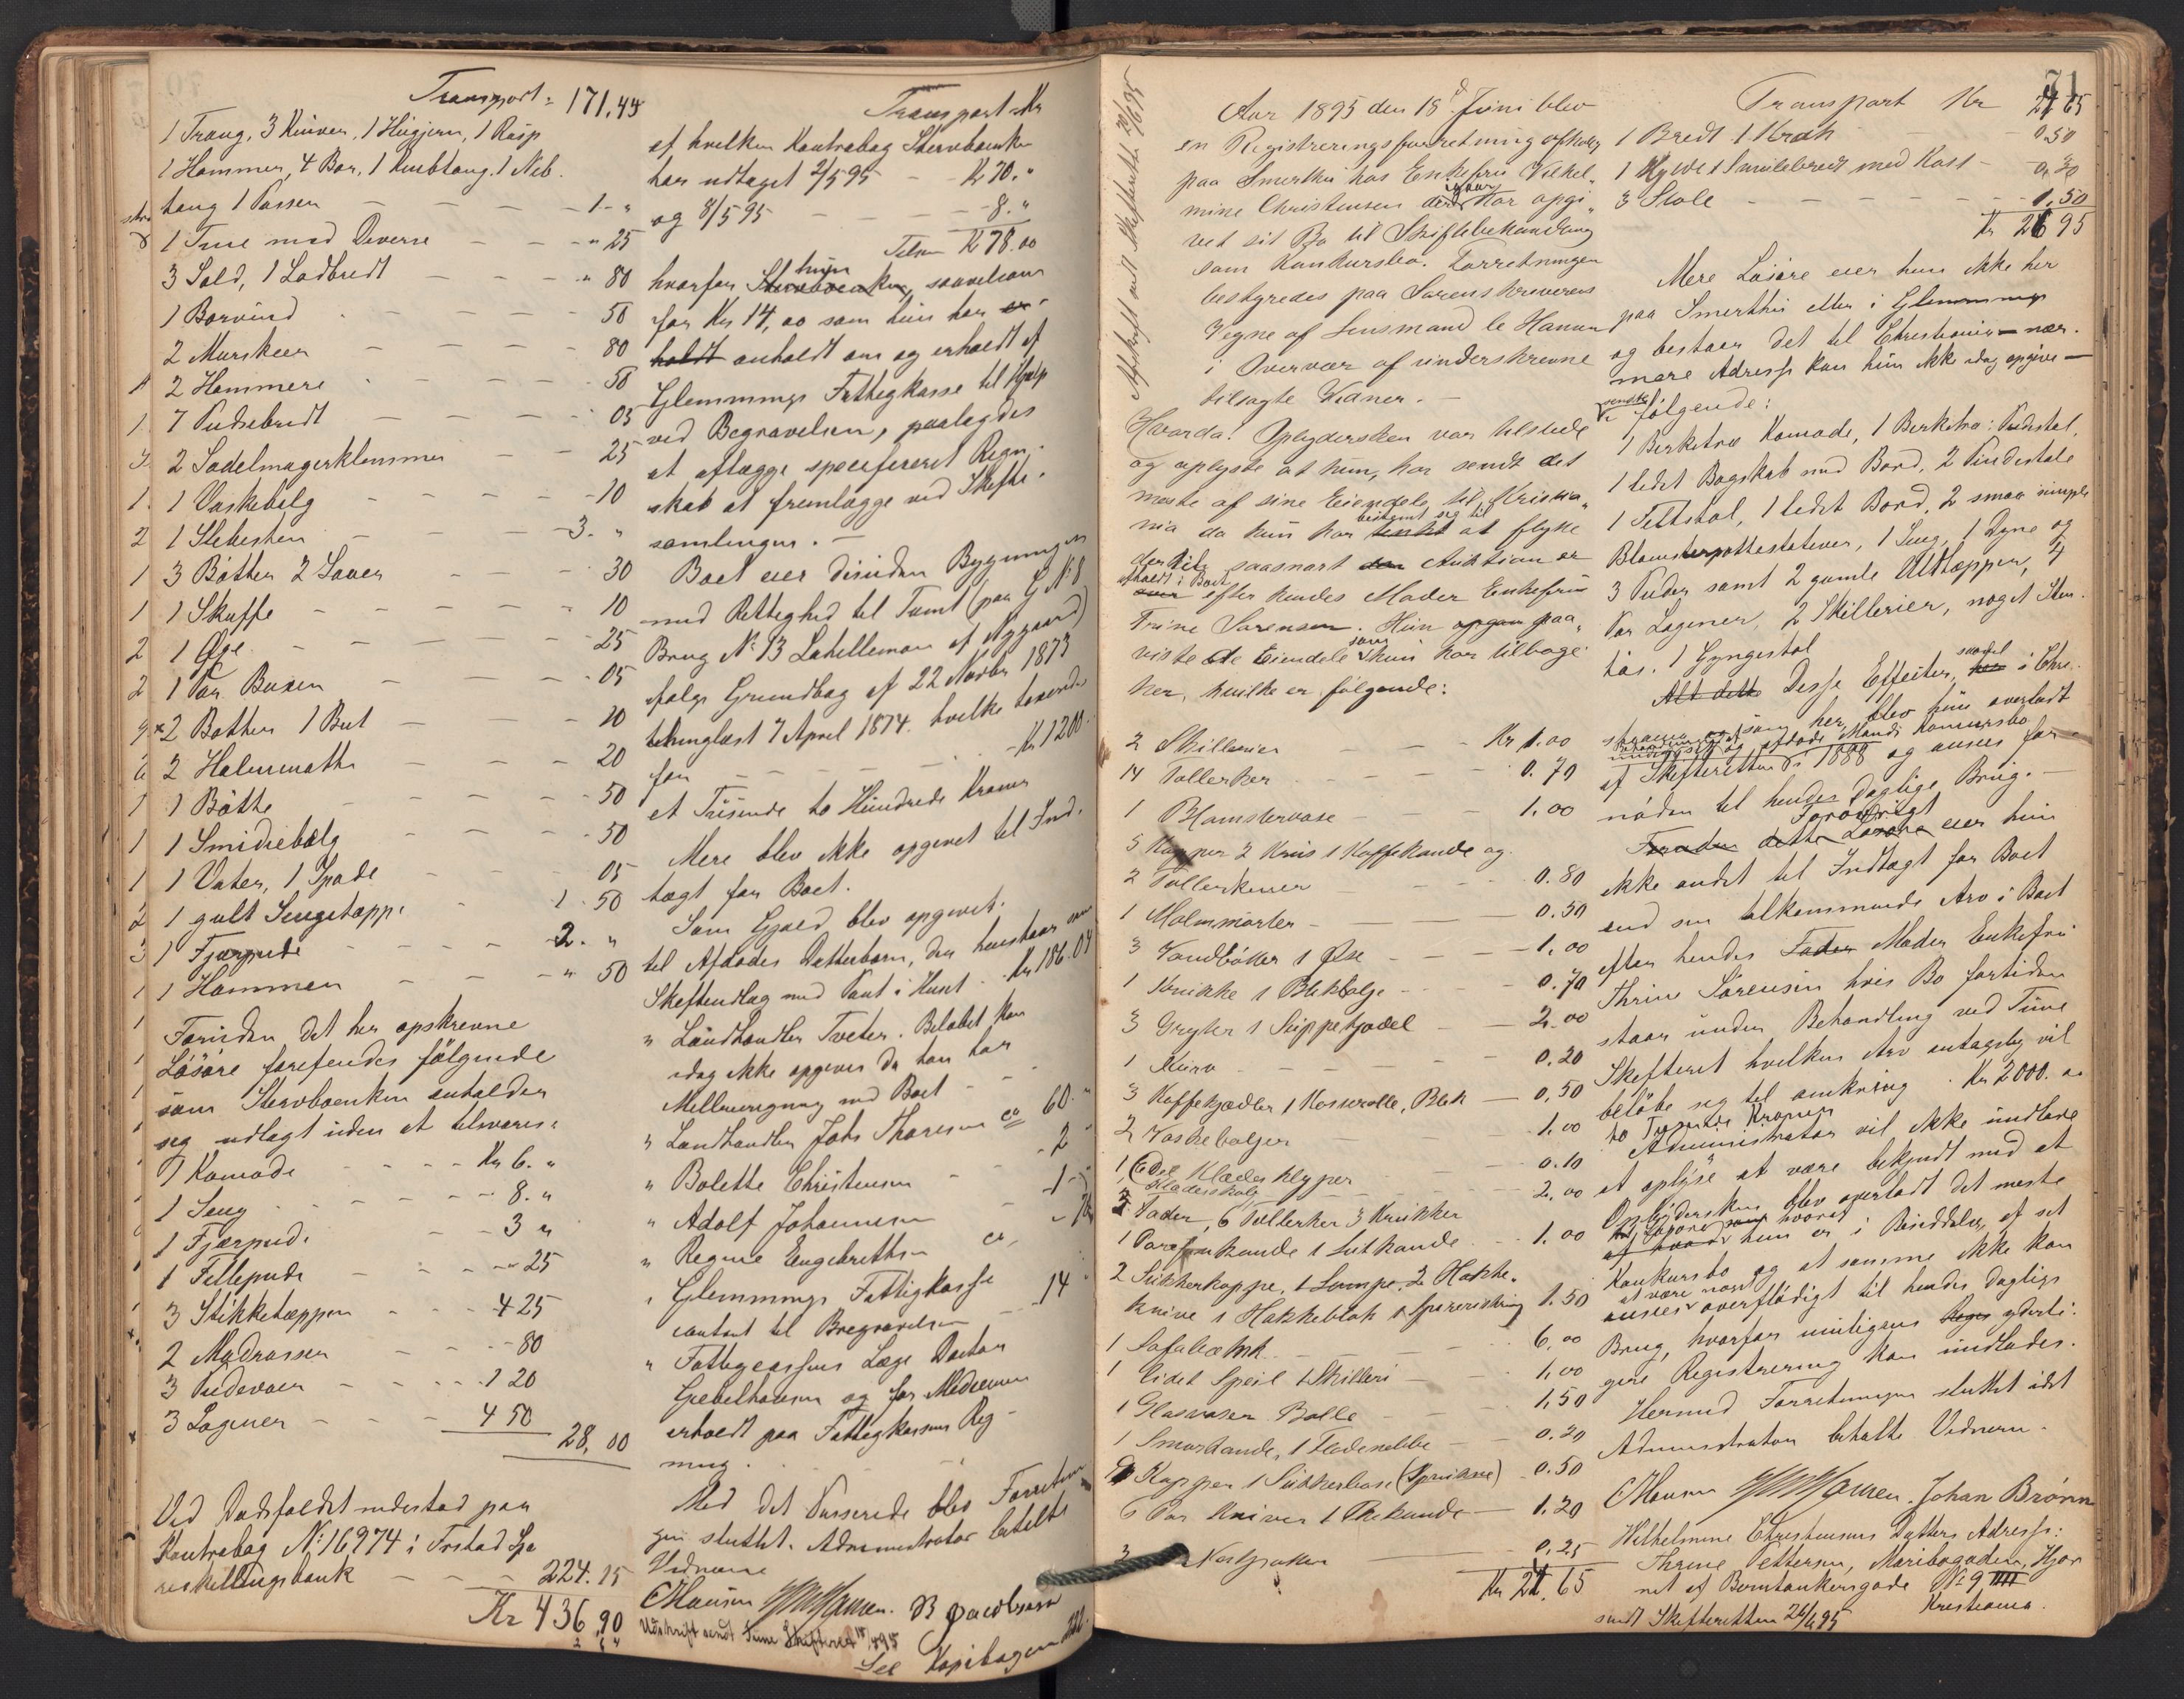 Transport = 171,44
1 Trang, 3 Kniver, 1 Hugjern, 1 Rasp
1 Hammer, 4 Bor, 1 Knibtang, 1 Neb
tang 1 Passer - - - - - 1 - "
1 Tine med Diverse - - - " 25
3 Sold, 1 Lodbredt - - - " 80
1 Borvind - - - - 50
2 Murskeer - - - - 80
2 Hammere - - - - 50
7 Pudsebredt - - - 05
2 Sadelmagerklemmer - - 25
1 Vaskebalg - - - - 10
1 Slibesten - - - - 3. "
3 Bøtter 2 - - - 30
1 Skuffe - - - - 10
1 Øxe - - - - 25
1 Par Buxer - - - 05
2 Bøtter 1 But - - - 20
2 Halmmatter - - - 20
1 Bøtte - - - - 50
1 Smidiebælg - - - 50
1 Vater, 1 Spade - - - 05
1 gult Sengetæppe - 1 . 50
1 Fjærpude - - - 2. "
1 Hammer - - - " 50
Foruden det her opskrevne
Løsøre forefindes følgende
som Stervboenken anholder
sig udlagt uden at tilsvares.
1 Komode - - - Kr 6. "
1 Seng - - - - 8. "
1 Fjærpude - - 3 "
1 Fillepude - - - " 25
3 Stikketæpper - - - 4 25
2 Madrasser - - - - 80
3 Pudevaer - - - - 1 20
3 Lagener - - - 4 50
28,00
Ved Dødsfaldet indestod paa
Kontrabog No 16974 i Frstad Spa
reskillingsbank - - - 224.25
Kr 436,90
Transport Kr
af hvilken Kontrabog Stervboenken
har udtaget 2/5 95 - - Kr 70. "
og 8/5 95 - - - - 8. "
Tilsm Kr 78.00
hvorfor Stervboenken hun, saavelsom
for Kr 14,00 som hun har er
holdt anholdt om og erholdt af
Glemminge Fattigkasse til Hjælp
ved Begravelsen, paalagdes
at aflægge specificeret Regn-
skab at fremlægge ved Skifte-
samlingen. -
Boet eier desuden Bygningen
med Rettighed til Tomt (paa G No 8
Brug No 13 Labellemoen af Nygaard)
ifølge Grundbog af 22 Novbr 1873
thinglæst 7 April 1874. hvilke taxerede
for - - - - - Kr 1200.
et Tusinde to Hundrede Kroner
Mere blev ikke opgivet til Ind.
tægt for Boet.
Som Gjæld blev opgivet.
til Afdødes Datterbarn, der henstaar som
Skifteudlæg med Pant i Huset - Kr 186.04
" Landhandler Tveter. Beløbet kan
idag ikke opgives da han har
Mellemregning med Boet - -
" Landhandler Johs Thoresen ca 60. "
" Bolette Christensen - - 2 "
" Adolf Johannesen - - 1 - "
" Regine Engebretsen ca
" Glemminge Fattigkasse
contant til Begravelsen - 14
" Fattigcassens Læge Doctor
Gebelhausen og for Medicinen
erholdt paa Fattigkassens Reg-
ning.
Med det Passerede blev Forretnin
gen sluttet. Administrator betalte
Vidnerne
CHansen B Jacobsen
Udskrift sendt Tune Skifteret 18/5 95
See Kopibogen 222.
Afskrift sendt Skifteretten 20/6 95
Aar 1895 den 15d Juni blev
en Registreringsforretning afholdt
paa Smertku hos Enkefru Vilhel-
mine Christensen der igaar har opgi-
vet sit Bo til Skiftebehandling
som Konkursbo. Forretningen
bestyredes paa Sorenskriverens
Vegne af Lensmand le Hansen
i Overvær af underskrevne
tilsagte Vidner. -
Hvorda! Opbydersken var tilstede
og oplyste at hun, har sendt det
meste af sine Eiendele til Kristia-
nia da hun har tænkt bestemt sig til at flytte
derhid saasnart den Auktion er
over afholdt i Boet efter hendes Moder Enkefru
Trine Sørensen. Hun opgav paa-
viste de Eiendele som hun har tilbage
her, hvilke er følgende:
2 Skillerier - - - Kr 1.00
14 Tallerker - - - 0.70
1 Blomstervase - - 1.00
5 Kopper 2 Krus 1 Kaffekande og
2 Tallerkener - - 0.80
1 Malmmorter - - 0.50
3 Vandbøtter 1 Øse - - 1.00
1 Krukke 1 Blikbalje - - 0.70
3 Gryter 1 Suppekjædel - 2.00
1 Kurv - - - 0.20
3 Kaffekjædler 1 Kasserolle, Blik - 0,50
2 Vaskebaljer - - 1.00
1 Del Klædesklyper - 0.10
Klædesskab - - 2.00
2 Fader, 6 Tallerker 3 Krukker
1 Parafinkande 1 Litkande - 1.00
2 Sukkerkoppe, 1 Lampe, 2 Hakke-
knive 1 Hakkeblok 1 - 1.50
1 Sofabænk - - 6.00
1 lidet Speil 1 Skilleri - 1,00
1 Glasvaser Bolle - - 1,50
1 Smørkande, 1 Flødenebbe - 0.20
9 Kopper 1 Sukkerbøsse (Sprukne) 0.50
6 Par Kniver 1 Thekande - 1.20
3 - 0.25
Kr 24.65
71
Transport Kr 24 65
1 Bredt 1 Krak - - 0.50
1 Hylde 1 Smulebredt med Kost - 0,30
3 Stole - - - - 1,50
Kr 26 95
Mere Løsøre eier hun ikke her
paa Smertku eller i Glemminge
og bestaar det til Christiania - nær-
mere Adresse kan hun ikke idag opgive -
sendte følgende:
1 Birketræ Komode, 1 Birketræ: Pudestol,
1 lidet Bogskab med Bord, 2 Pindestole
1 Feltstol, 1 lidet Bord, 2 smaa simple
Blomsterpottestativer, 1 Seng, 1 Dyne og
3 Puder samt 2 gamle Uldtæpper, 4
Par Lagener, 2 Skillerier, noget Sten
tøi. 1 Gyngestol
Alt dette Desse Effecter, saavel her i Chri-
stiania som her, blev hun overladt
af Skifteretten i 1888 og ansees for
nøden til hendes daglige Brug. -
Foruden dette Løsøre Forøvrigt eier hun
ikke andet til Indtægt for Boet
end sin tilkommende Arv i Boet
efter hendes Fader Moder Enkefru
Thrine Sørensen hvis Bo fortiden
staar under Behandling ved Tune
Skifteret hvilken Arv antagelig vil
beløbe sig til omkring . Kr 2000.00
to Tusinde Kroner
Administrator vil ikke undlade
at oplyse at være bekjendt med at
Opbydersken blev overladt det meste
af hvad Løsøre som hvoraf hun er i Besiddelse, af set
Konkursbo og at samme ikke kan
ansees at være noget overflødigt til hendes daglige
Brug, hvorfor muligens yderli-
gere Registrering kan undlades.
Hermed Forretningen sluttet idet
Administrator betalte Vidnerne.
CHansen Johan Brønn
Wilhelmine Christensens Datters Adresse:
Thrine Pettersen, Maribogaden, Hjør
net af Bernt Ankersgade No 9 IIII
Kristiania.
sendt Skifteretten 24/6 95